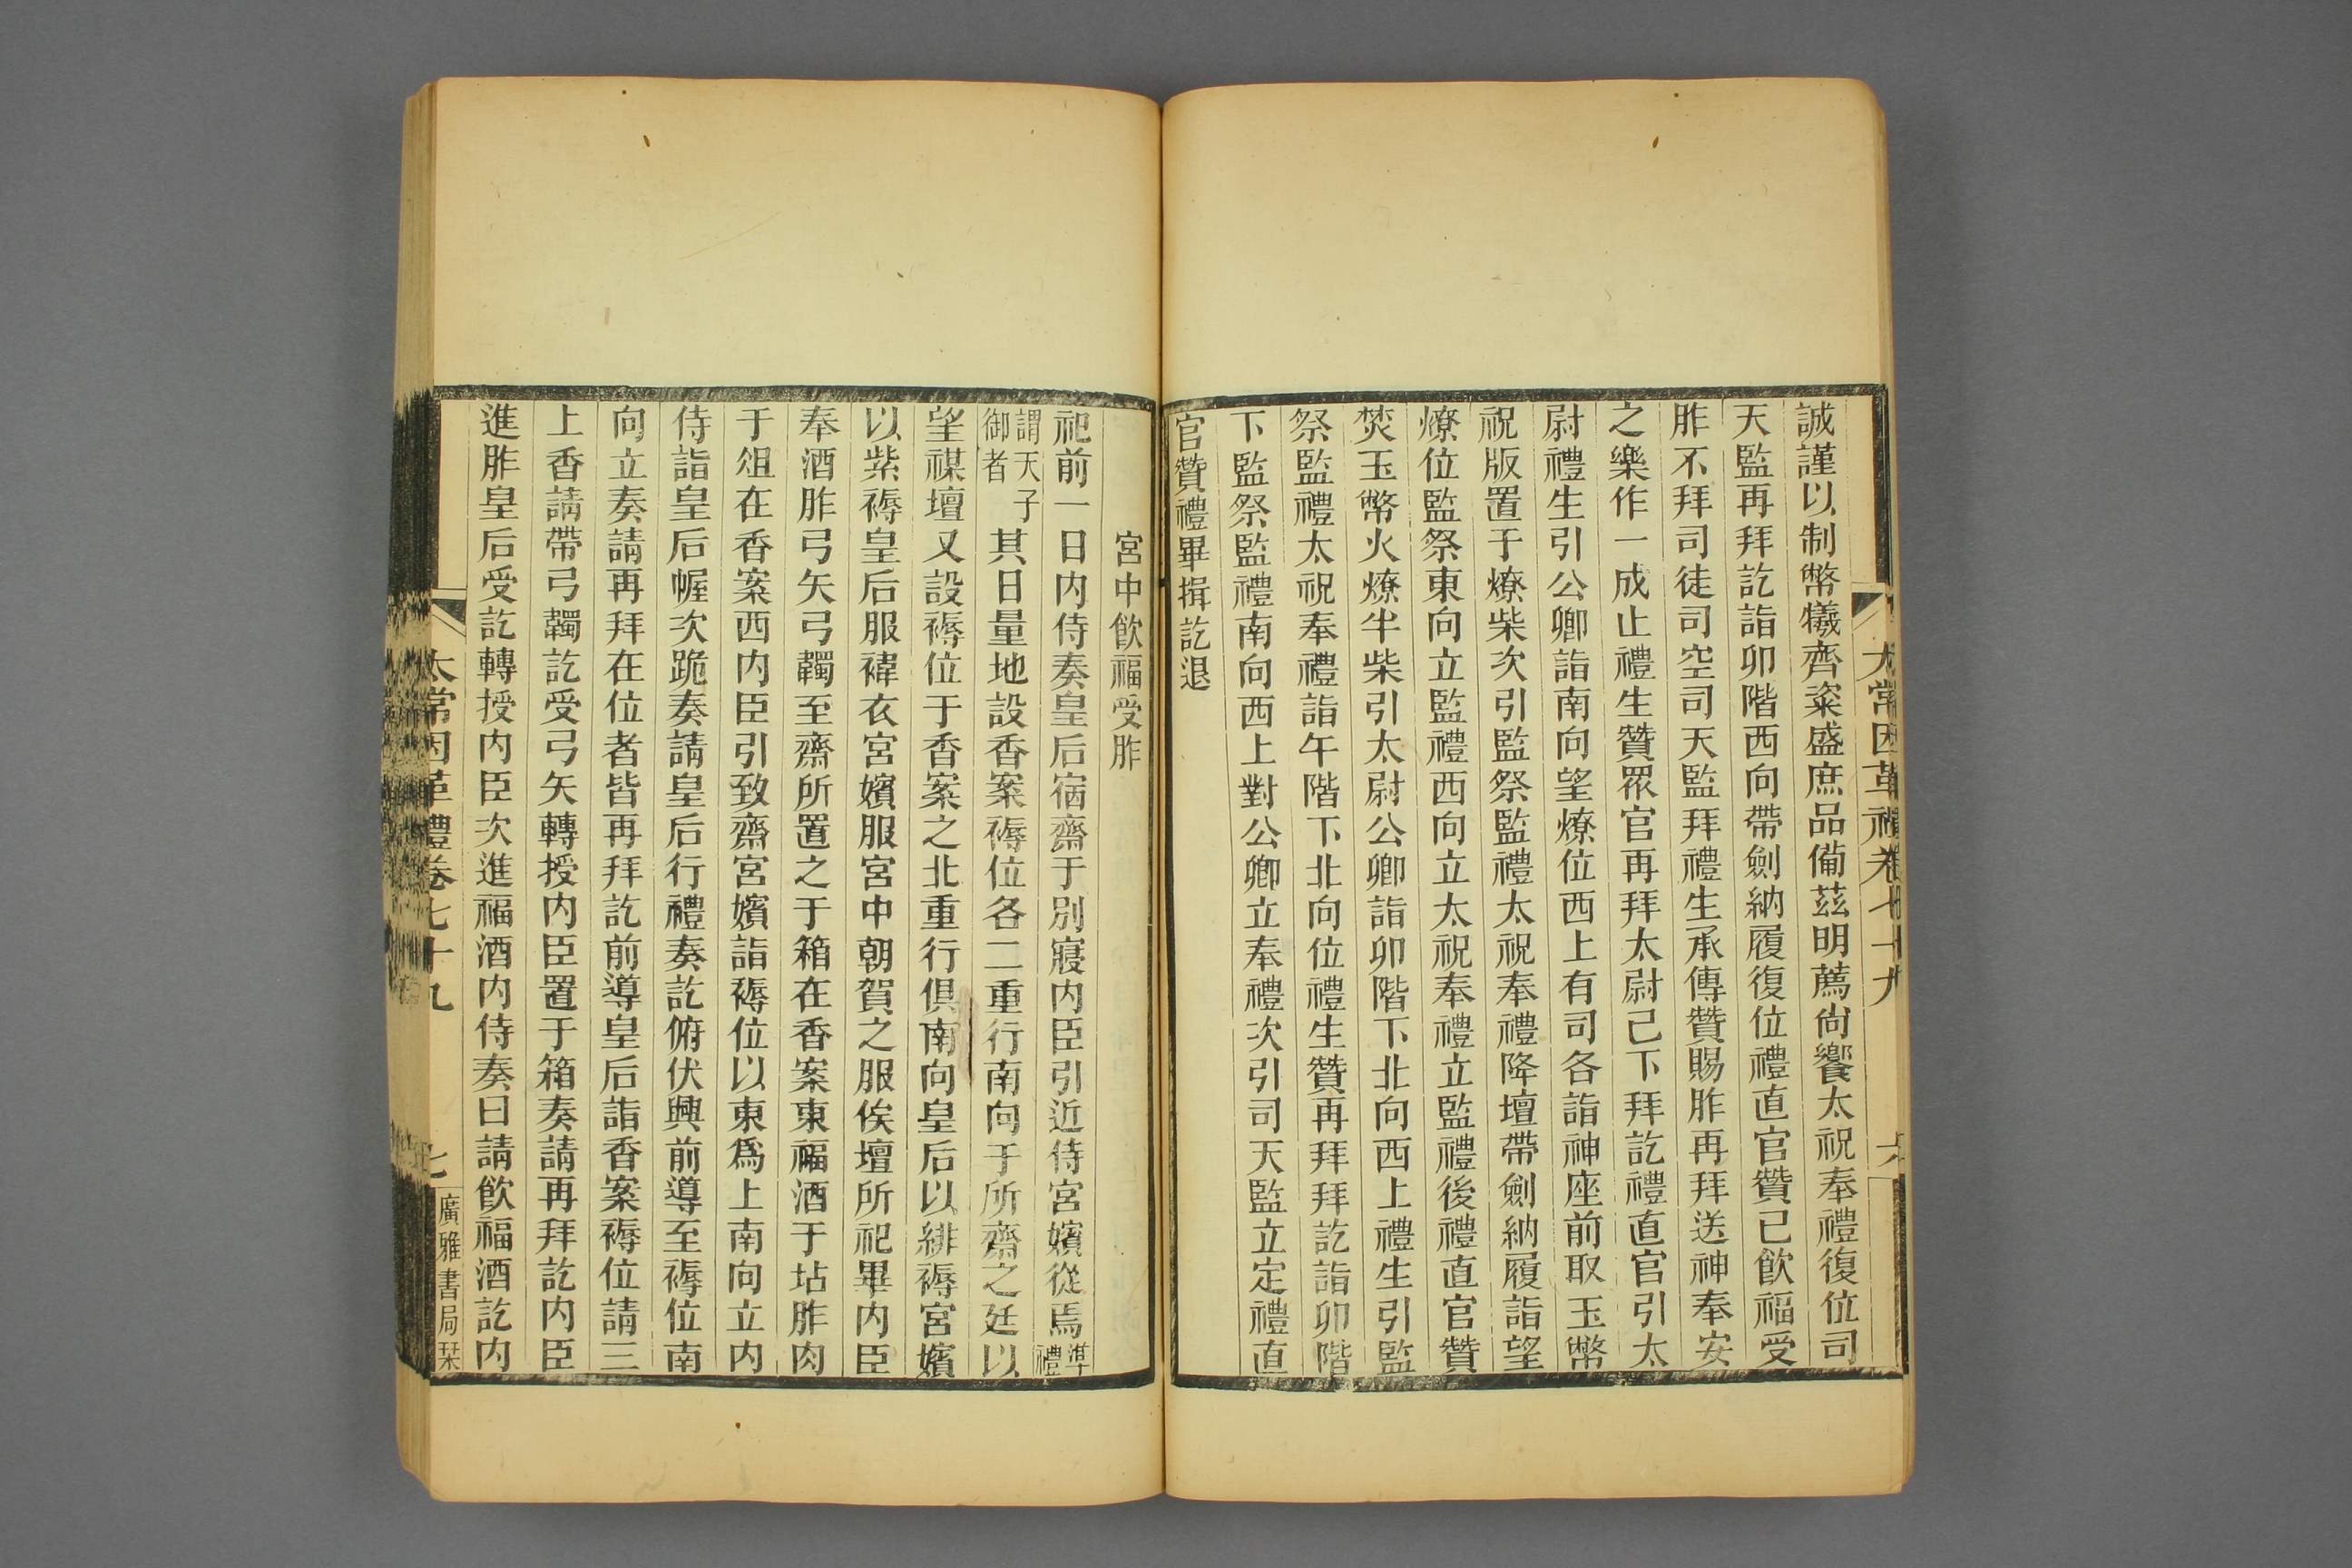 太常因革禮卷七十九
六
誠謹以制幣犧齊粢盛庶品備茲明薦尙饗太祝奉禮復位司
天監再拜訖詣卯階西向帶劍納履復位禮直官贊已飮福受
胙不拜司徒司空司天監拜禮生承傳贊賜胙再拜送神奉安
之樂作一成止禮生贊眾官再拜太尉己下拜訖禮直官引太
尉禮生引公卿詣南向望燎位西上有司各詣神座前取玉幣
祝版置于燎柴次引監祭監禮太祝奉禮降壇帶劍納履詣望
燎位監祭東向立監禮西向立太祝奉禮立監禮後禮直官贊
焚玉幣火燎半柴引太尉公卿詣卯階下北向西上禮生引監
祭監禮太祝奉禮詣午階下北向位禮生贊再拜拜訖詣卯階
下監祭監禮南向西上對公卿立奉禮次引司天監立定禮直
官贊禮畢揖訖退
宮中飮福受胙
祀前一日内侍奏皇后宿齋于別寢内臣引近侍宮嬪從焉準禮
謂天子御者其日量地設香案褥位各二重行南向于所齋之廷以
望禖壇又設褥位于香案之北重行俱南向皇后以緋褥宮嬪
以紫褥皇后服褘衣宮嬪服宮中朝賀之服俟壇所祀畢内臣
奉酒胙弓矢弓韣至齋所置之于箱在香案東福酒于坫胙肉
于俎在香案西内臣引致齋宮嬪詣褥位以東爲上南向立内
侍詣皇后幄次跪奏請皇后行禮奏訖俯伏興前導至褥位南
向立奏請再拜在位者皆再拜訖前導皇后詣香案褥位請三
上香請帶弓韣訖受弓矢轉授内臣置于箱奏請再拜訖内臣
進胙皇后受訖轉授内臣次進福酒内侍奏曰請飮福酒訖内
太常因革禮卷七十九
七
廣雅書局栞